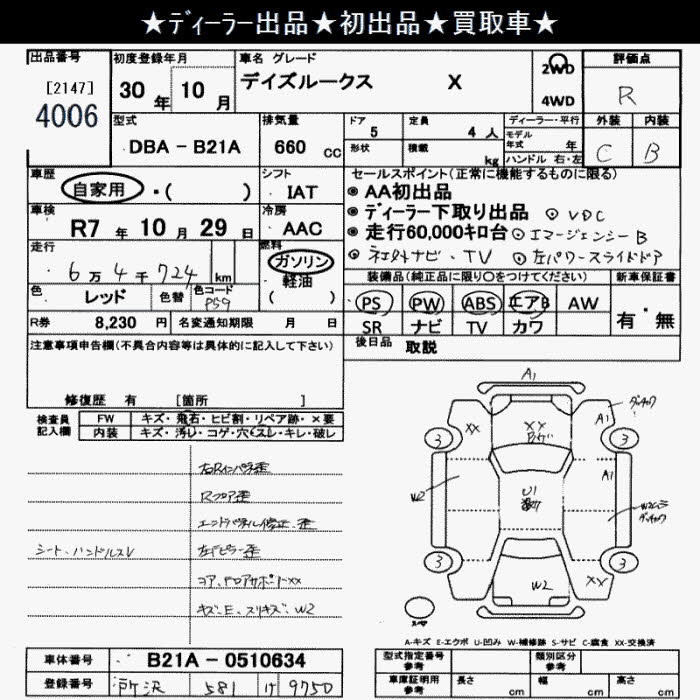 ★ディーラー出品★初出品★買取車★
出品番号
[2147]
4006
初度登録年月
30 年 10 月
車名 グレード
デイズルークス X
2WD
4WD
評価点
R
型式
DBA - B21A
排気量
660 cc
ドア
5
定員
4 人
形状
積載
kg
ディーラー・平行
モデル年式 年
ハンドル 右・左
外装 内装
C B
車歴
自家用 ・( )
シフト
IAT
車検
R7 年 10 月 29 日
冷房
AAC
走行
6万4千724 km
燃料
ガソリン
軽油
( )
色
レッド
色替
色コード
R券 8,230 円
名変通知期限 月 日
セールスポイント(正常に機能するものに限る)
◉ AA初出品
◉ ディーラー下取り出品 ◎ VDC
◉ 走行60,000キロ台 ◎ エマージェンシーB
◎ 左パワースライドドア
装備品(純正品に限り○をつけてください)
新車保証書
PS PW ABS エアB AW
SR ナビ TV カワ
有・無
後日品 取説
注意事項申告欄(不具合内容等は具体的に記入して下さい)
修復歴 有 [箇所 ]
検査員記入欄
FW キズ・飛石・ヒビ割・リペア跡・×要
内装 キズ・汚レ・コゲ・穴・スレ・キレ・破レ
右Rインパネ歪
Rフロア歪
エンドパネル修正、歪
シート、ハンドルスレ
左Dピラー歪
コア、FロアサポートXX
キズ、E、スリキズ、W2
A1
A1
XX
XX
3
3
A1
W2
U1
3
3
W2
XX
A-キズ E-エクボ U-凹み W-補修跡 S-サビ C-腐食 XX-交換済
車体番号
B21A - 0510634
登録番号
所沢 581 け 9750
型式指定番号
参考
類別区分
参考
車庫証明用
参考
長さ cm
幅 cm
高さ cm